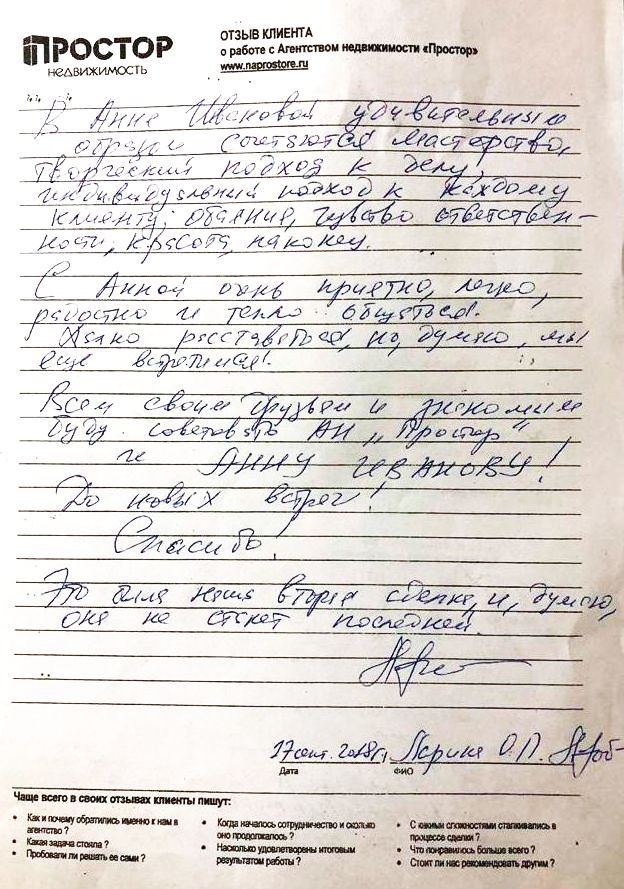 ПРОСТОР
НЕДВИЖИМОСТЬ
ОТЗЫВ КЛИЕНТА
о работе с Агентством недвижимости «Простор»
www.naprostore.ru
В Анне Ивановой удивительным
образом сочетаются мастерство,
творческий подход к делу,
индивидуальный подход к каждому
клиенту, обаяние, чувство ответствен-
ности, красота, наконец.
С Анной очень приятно, легко,
радостно и тепло общаться.
Жалко расставаться, но, думаю, мы
еще встретимся!
Всем своим друзьям и знакомым
буду советовать АН „Простор"
и АННУ ИВАНОВУ!
До новых встреч!
Спасибо!
Это была наша вторая сделка, и, думаю,
она не станет последней.
17 сент. 2018 г. Ларина О.П.
Дата ФИО
Чаще всего в своих отзывах клиенты пишут:
• Как и почему обратились именно к нам в
агентство ?
• Какая задача стояла ?
• Пробовали ли решать ее сами ?
• Когда началось сотрудничество и сколько
оно продолжалось ?
• Насколько удовлетворены итоговым
результатом работы ?
• С какими сложностями сталкивались в
процессе сделки ?
• Что понравилось больше всего ?
• Стоит ли нас рекомендовать другим ?